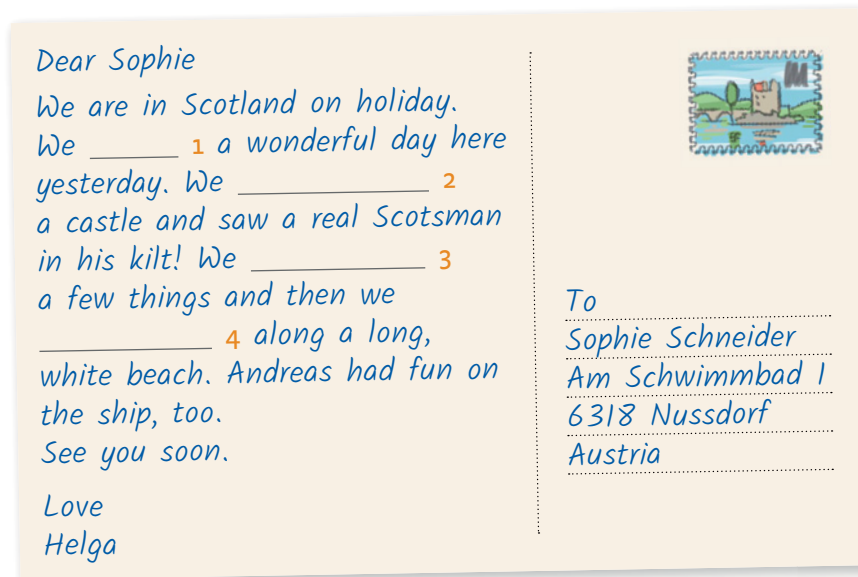 Dear Sophie
We are in Scotland on holiday.
We ______ 1 a wonderful day here
yesterday. We ____________ 2
a castle and saw a real Scotsman
in his kilt! We ____________ 3
a few things and then we
____________ 4 along a long,
white beach. Andreas had fun on
the ship, too.
See you soon.
Love
Helga
To
Sophie Schneider
Am Schwimmbad 1
6318 Nussdorf
Austria